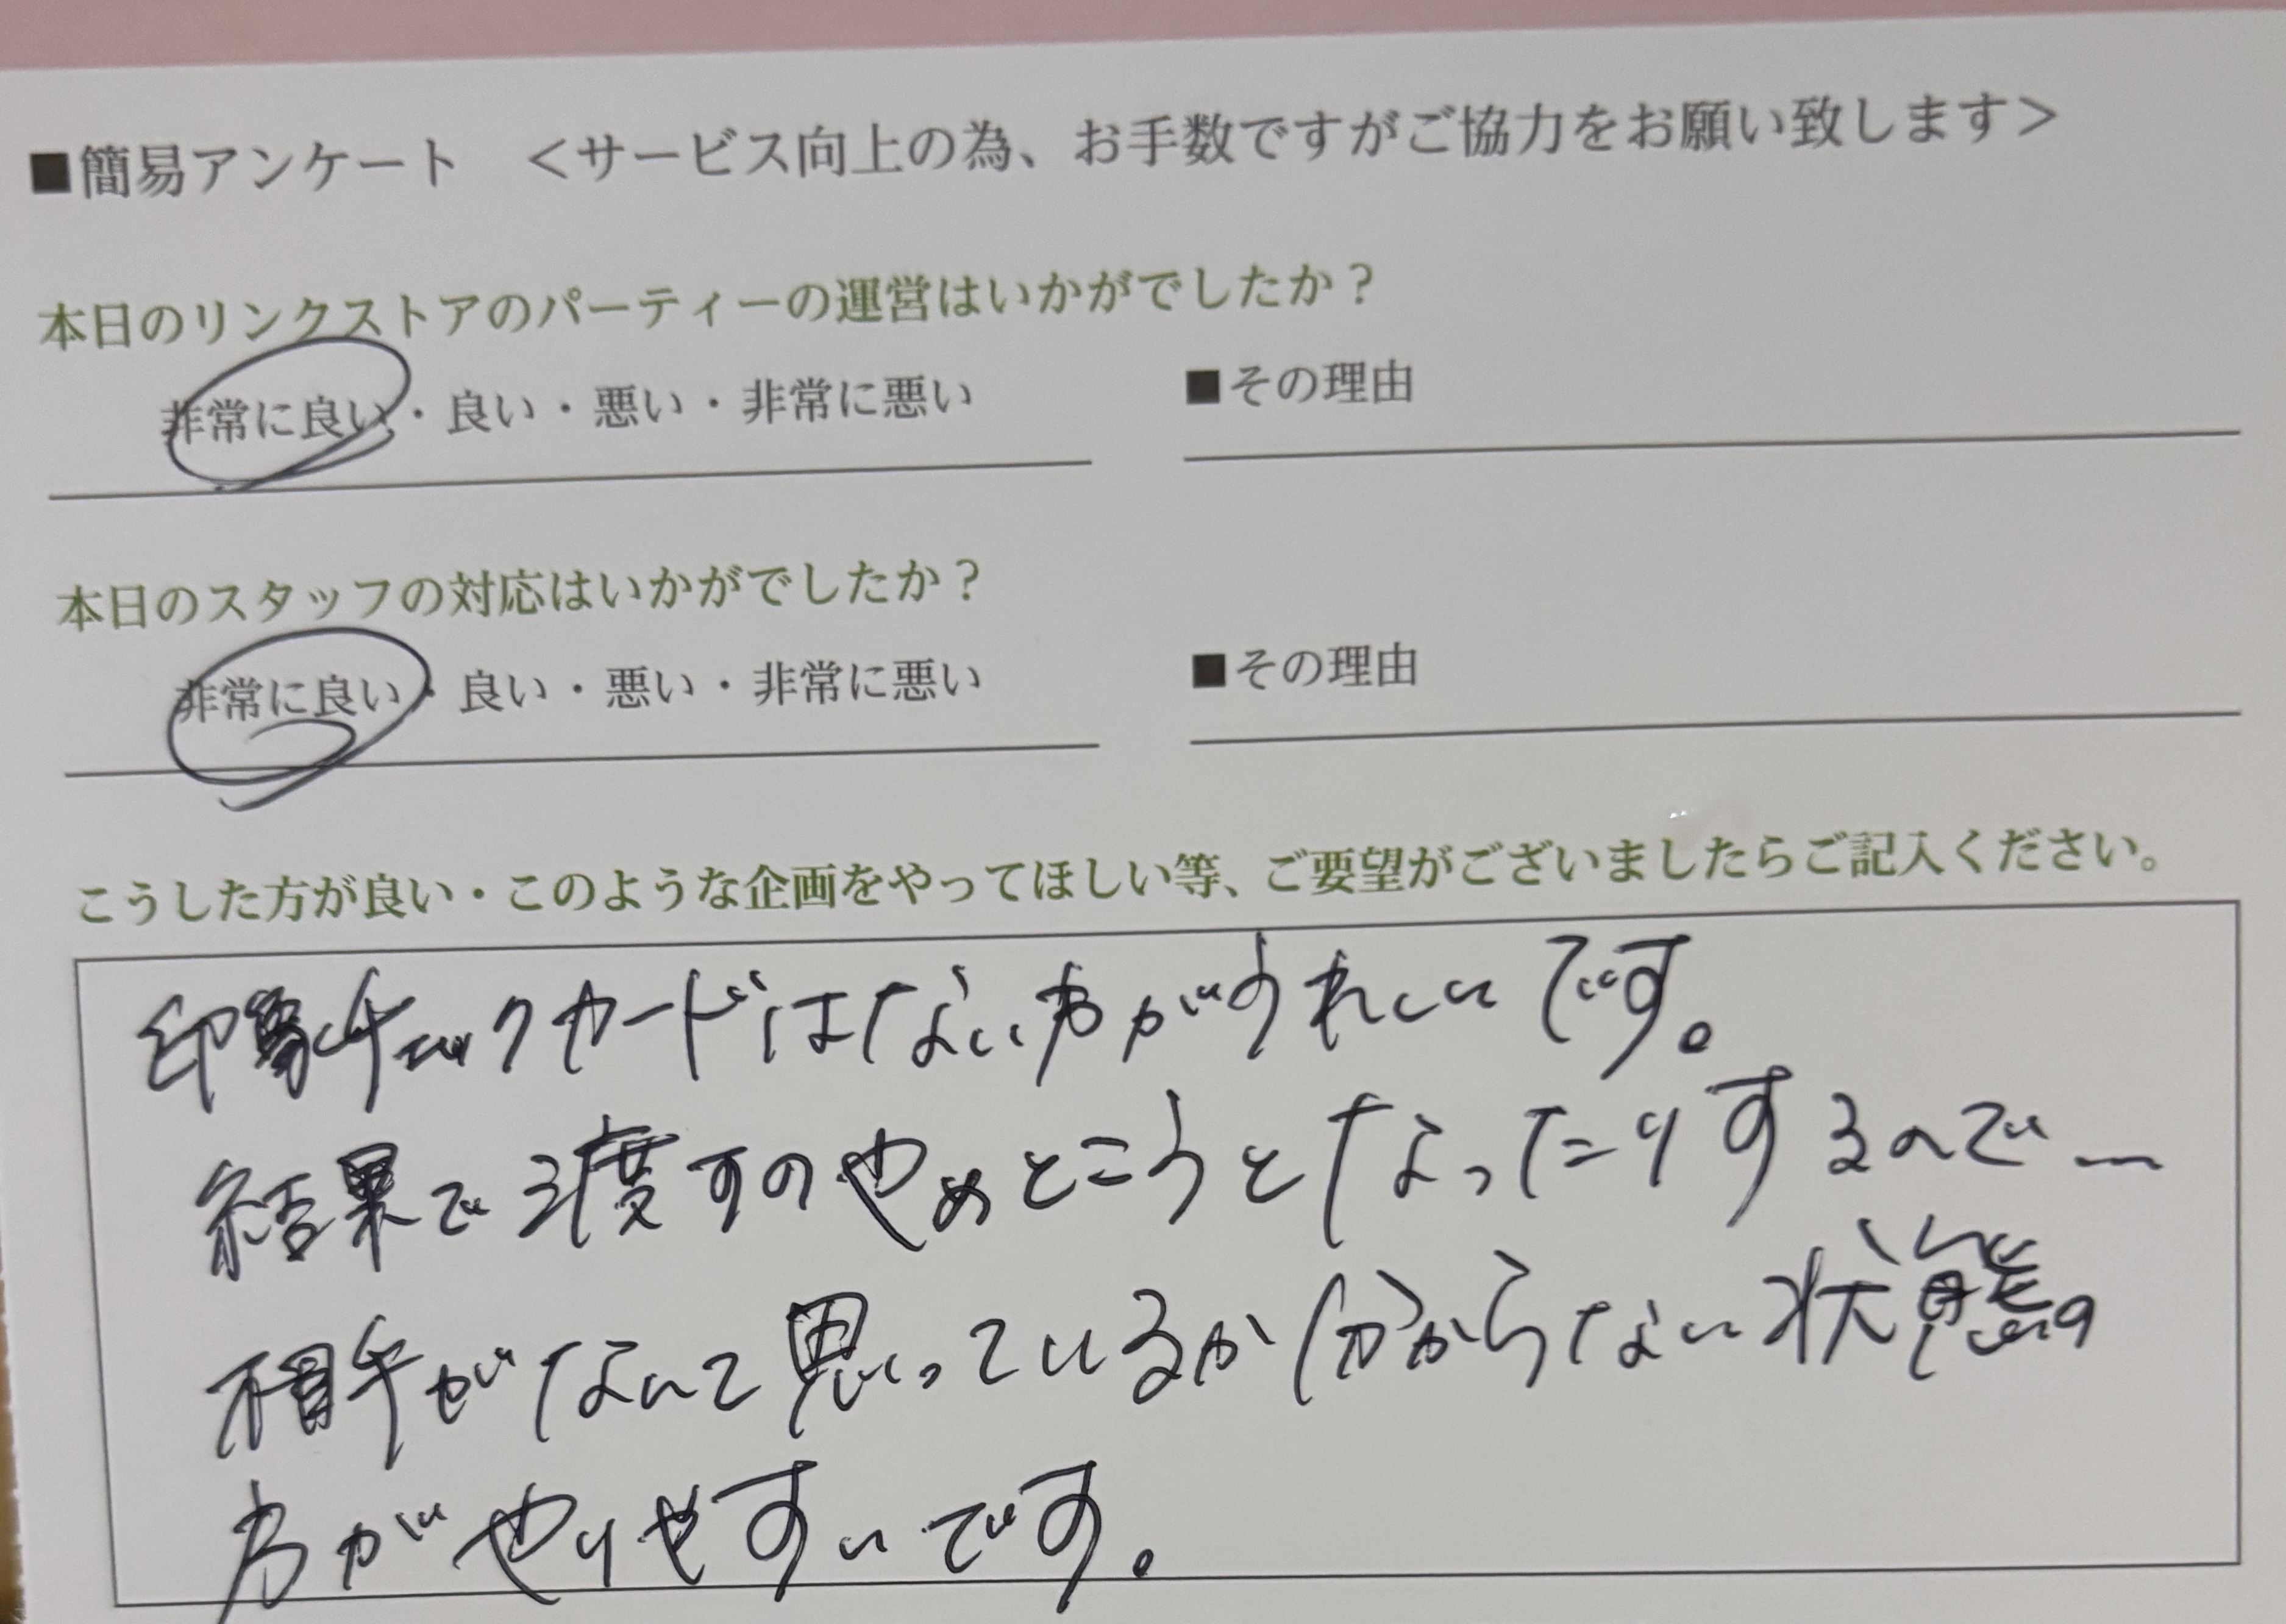 ■簡易アンケート <サービス向上の為、お手数ですがご協力をお願い致します>
本日のリンクストアのパーティーの運営はいかがでしたか？
非常に良い・良い・悪い・非常に悪い ■その理由
本日のスタッフの対応はいかがでしたか？
非常に良い・良い・悪い・非常に悪い ■その理由
こうした方が良い・このような企画をやってほしい等、ご要望がございましたらご記入ください。
印象チェックカードはない方がうれしいです。
結果で渡すのやめところうとなったりするので…
相手がなんて思っているか分からない状態の
方がやりやすいです。